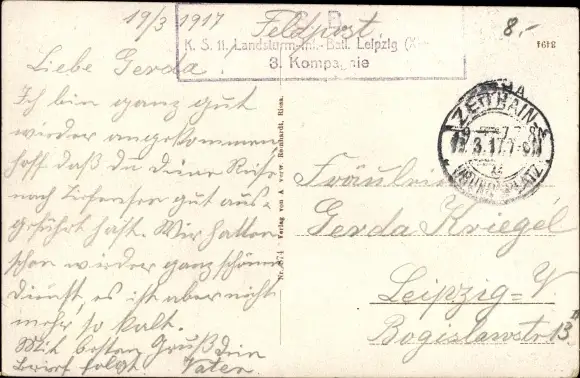 19/3 1917 Feldpost.
8,-
K. S. 11. Landsturm-Inf.-Batl. Leipzig
3. Kompagnie
1916
Liebe Gerda!
Ich bin ganz gut
wieder angekommen
hoff daß du deine Reise
nach gut aus-
geführt hast. Wir hatten
schon wieder ganz schönen
Dienst, es ist aber nicht
mehr so kalt.
Mit besten Gruß dein
Brief folgt Vater.
Verlag von A. verw. Reinhardt, Riesa.
ZEITHAIN
19.3.17.7-8N
Fräulein
Gerda Kriegel
Leipzig-V
Bogislawstr 13 II